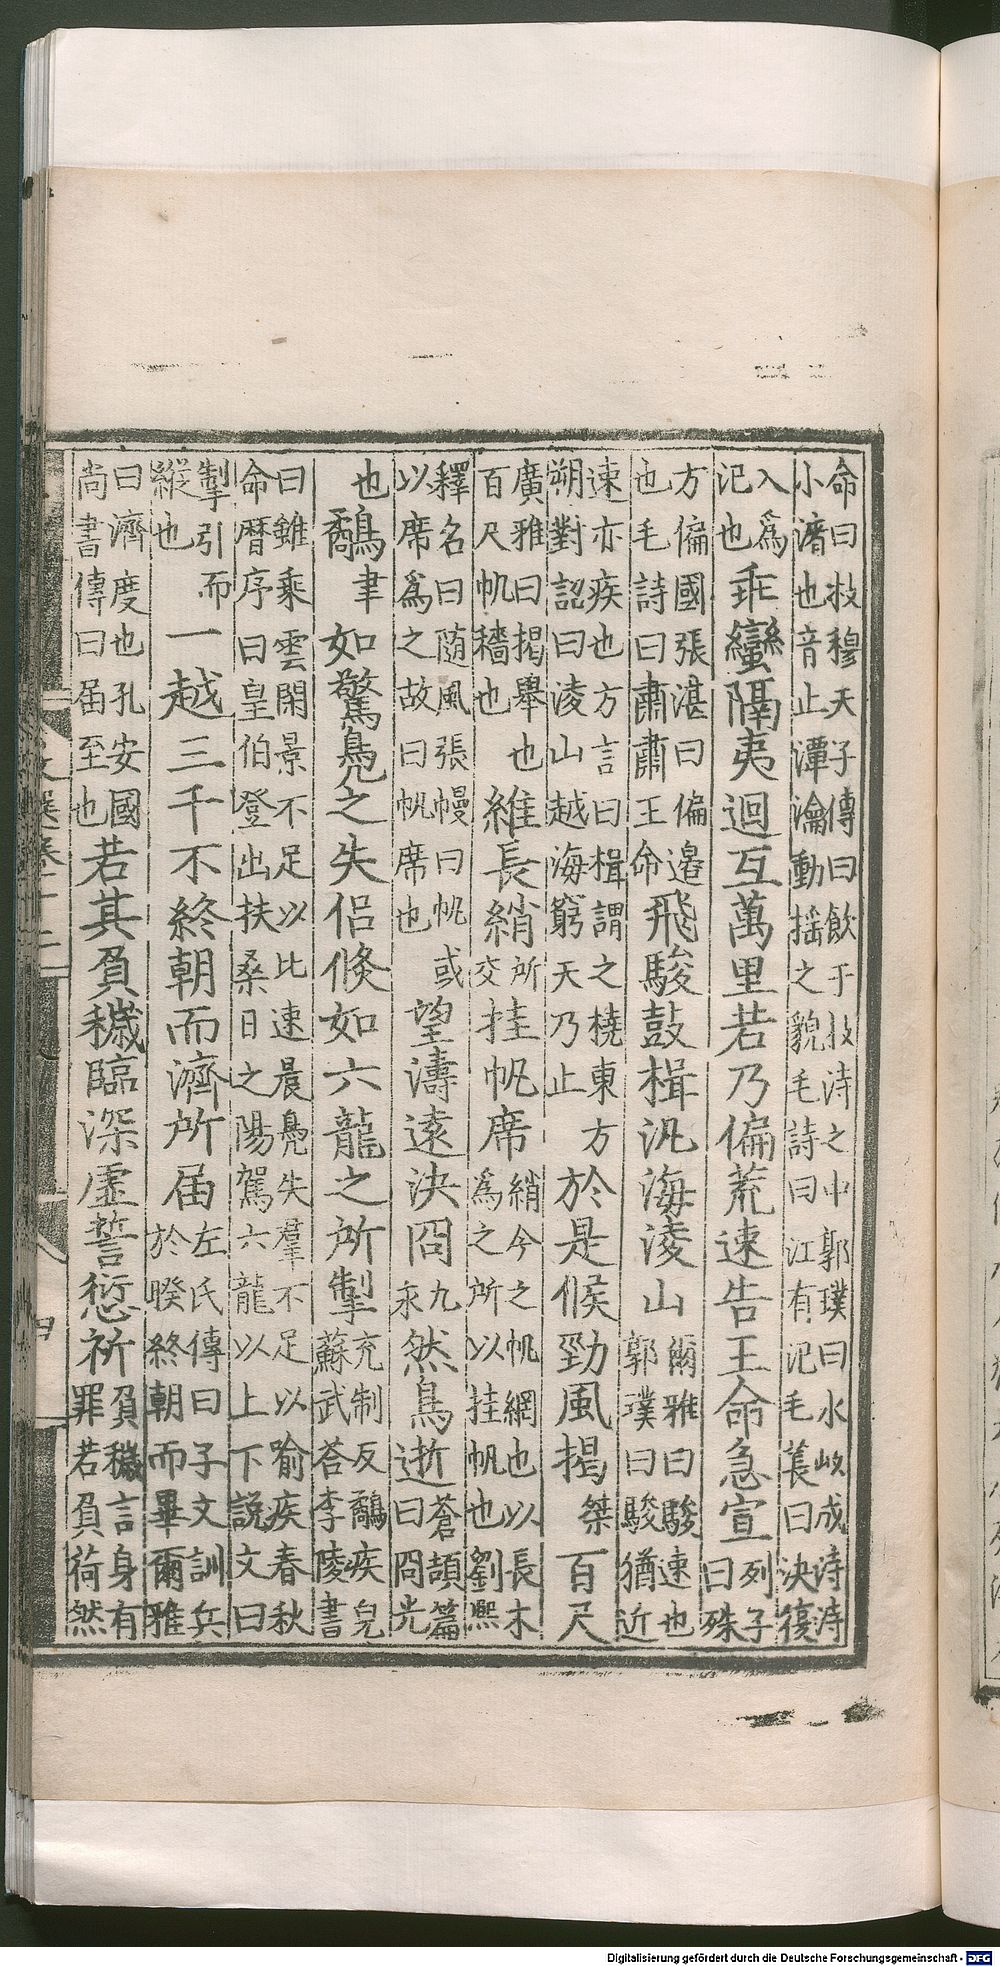 命曰救穆天子傳曰飲于枝洔之中郭璞曰水岐成洔洔
小渚也音止潭瀹動搖之貌毛詩曰江有汜毛萇曰決復
入爲汜也乖蠻隔夷迴互萬里若乃偏荒速告王命急宣列子曰殊
方偏國張湛曰偏邉也毛詩曰肅肅王命飛駿鼓楫汎海淩山爾雅曰駿速也郭璞曰駿猶近
速亦疾也方言曰楫謂之橈東方朔對詔曰淩山越海窮天乃止於是候勁風揭桀百尺
廣雅曰揭舉也百尺帆穡也維長綃所交挂帆席綃今之帆網也以長木爲之所以挂帆也劉熙
釋名曰随風張幔曰帆或以席爲之故曰帆席也望濤遠決冏九永然鳥逝蒼頡篇曰冏光
也鷸聿如驚鳧之失侶倏如六龍之所掣充制反鷸疾皃蘇武荅李陵書
曰雖乘雲閒景不足以比速晨鳧失羣不足以喻疾春秋
命曆序曰皇伯登出扶桑日之陽駕六龍以上下說文曰
掣引而縱也一越三千不終朝而濟所届左氏傳曰子文訓兵於暌終朝而畢爾雅
曰濟度也孔安國尚書傳曰届至也若其負穢臨深虛誓愆祈負穢言身有罪若負荷然
文選卷十二
四
Digitalisierung gefördert durch die Deutsche Forschungsgemeinschaft - DFG